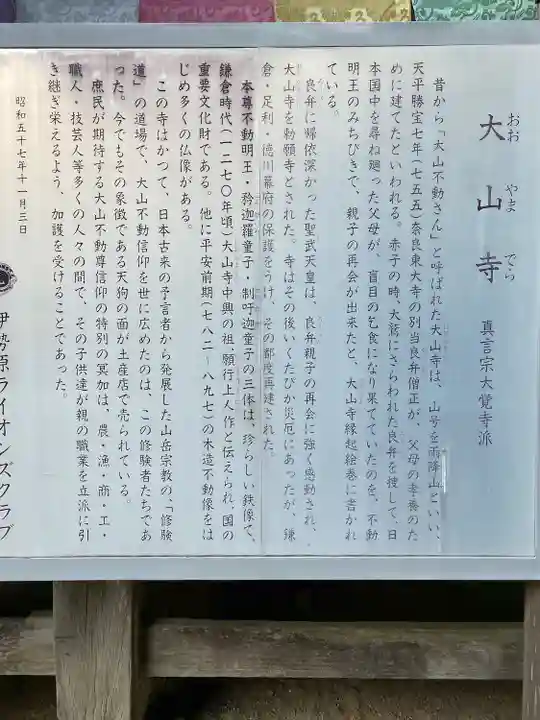 大山寺
おおやまでら
真言宗大覚寺派
昔から「大山不動さん」と呼ばれた大山寺は、山号を雨降山といい、
天平勝宝七年(七五五)奈良東大寺の別当良弁僧正が、父母の孝養のた
めに建てたといわれる。赤子の時、大鷲にさらわれた良弁を捜して、日
本国中を尋ね廻った父母が、盲目の乞食になり果てていたのを、不動
明王のみちびきで、親子の再会が出来たと、大山寺縁起絵巻に書かれ
ている。
良弁に帰依深かった聖武天皇は、良弁親子の再会に強く感動され、
大山寺を勅願寺とされた。寺はその後いくたびか災厄にあったが、鎌
倉・足利・徳川幕府の保護をうけ、その都度再建された。
本尊不動明王・矜迦羅童子・制吒迦童子の三体は、珍らしい鉄像で、
鎌倉時代(一二七〇年頃)大山寺中興の祖、願行上人作と伝えられ、国の
重要文化財である。他に平安前期(七八二–八九七)の木造不動像をは
じめ多くの仏像がある。
この寺はかつて、日本古来の予言者から発展した山岳宗教の、「修験
道」の道場で、大山不動信仰を世に広めたのは、この修験者たちであ
った。今でもその象徴である天狗の面が土産店で売られている。
庶民が期待する大山不動尊信仰の特別の冥加は、農・漁・商・工・
職人・技芸人等多くの人々の間で、その子供達が親の職業を立派に引
き継ぎ栄えるよう、加護を受けることであった。
昭和五十七年十一月三日
伊勢原ライオンズクラブ